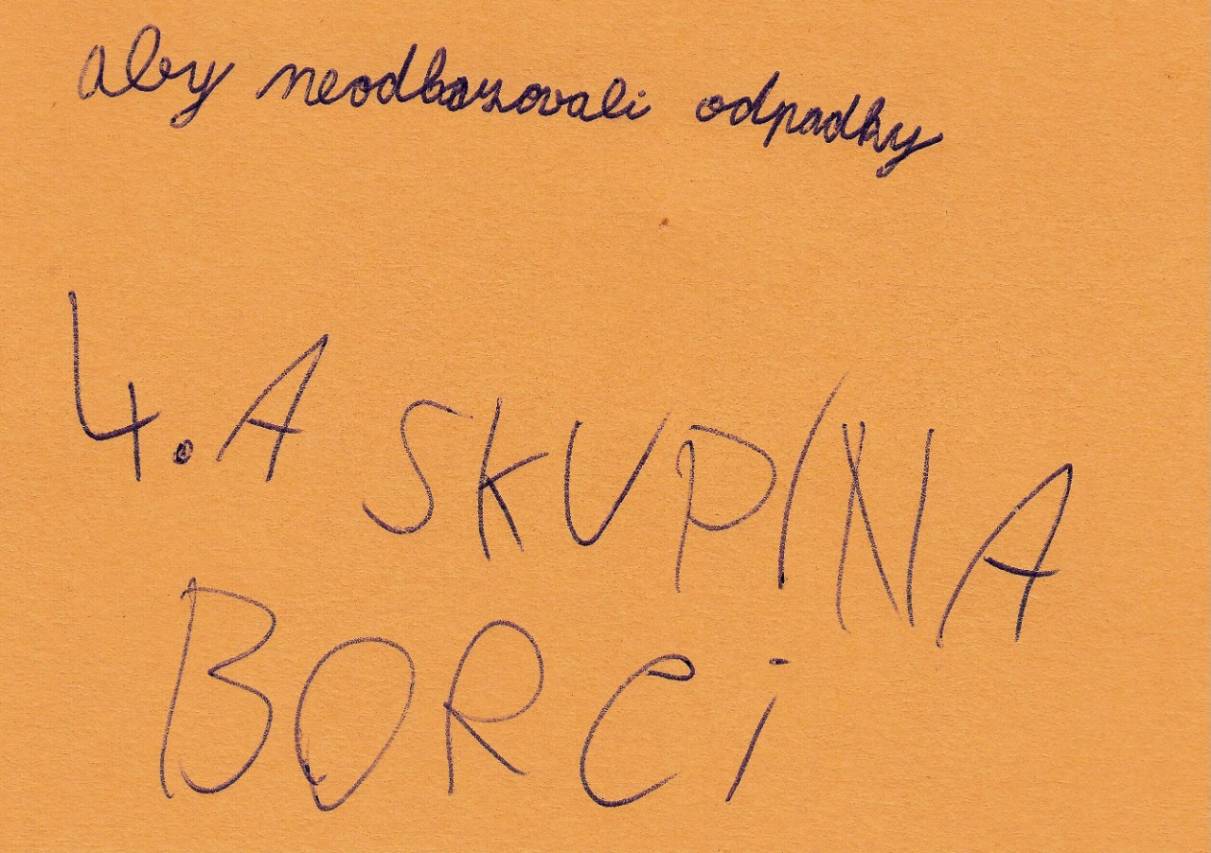 aby neodbazovali odpadky
4. A SKUPINA
BORCI